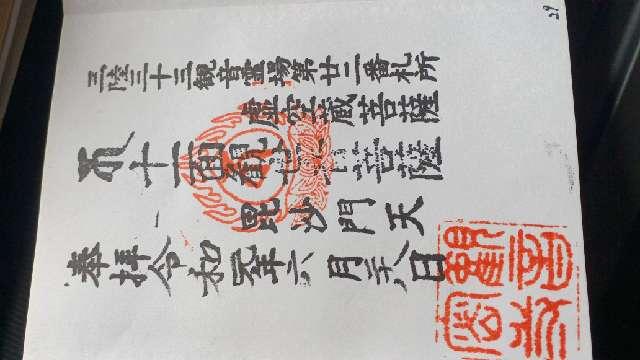 三陸三十三観音霊場第廿二番札所
虚空蔵菩薩
十一面観世音菩薩
毘沙門天
奉拝令和元年六月二八日
29